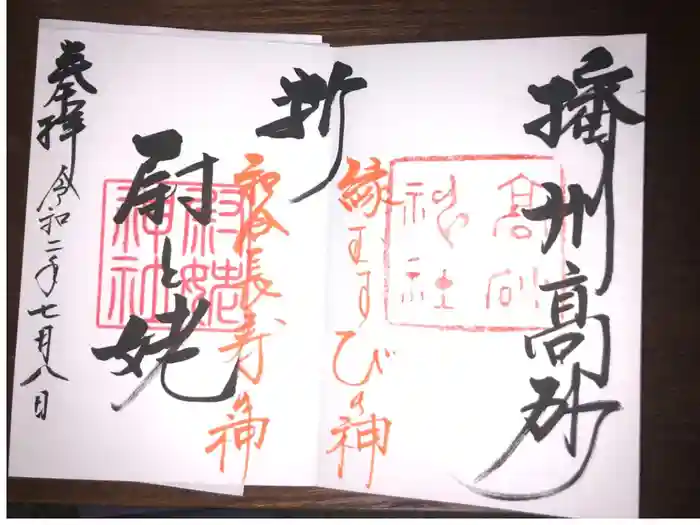 播州高砂
高砂
神社
縁むすびの神
祈
和合長寿の神
尉と姥
尉姥
神社
奉拝
令和二年七月八日